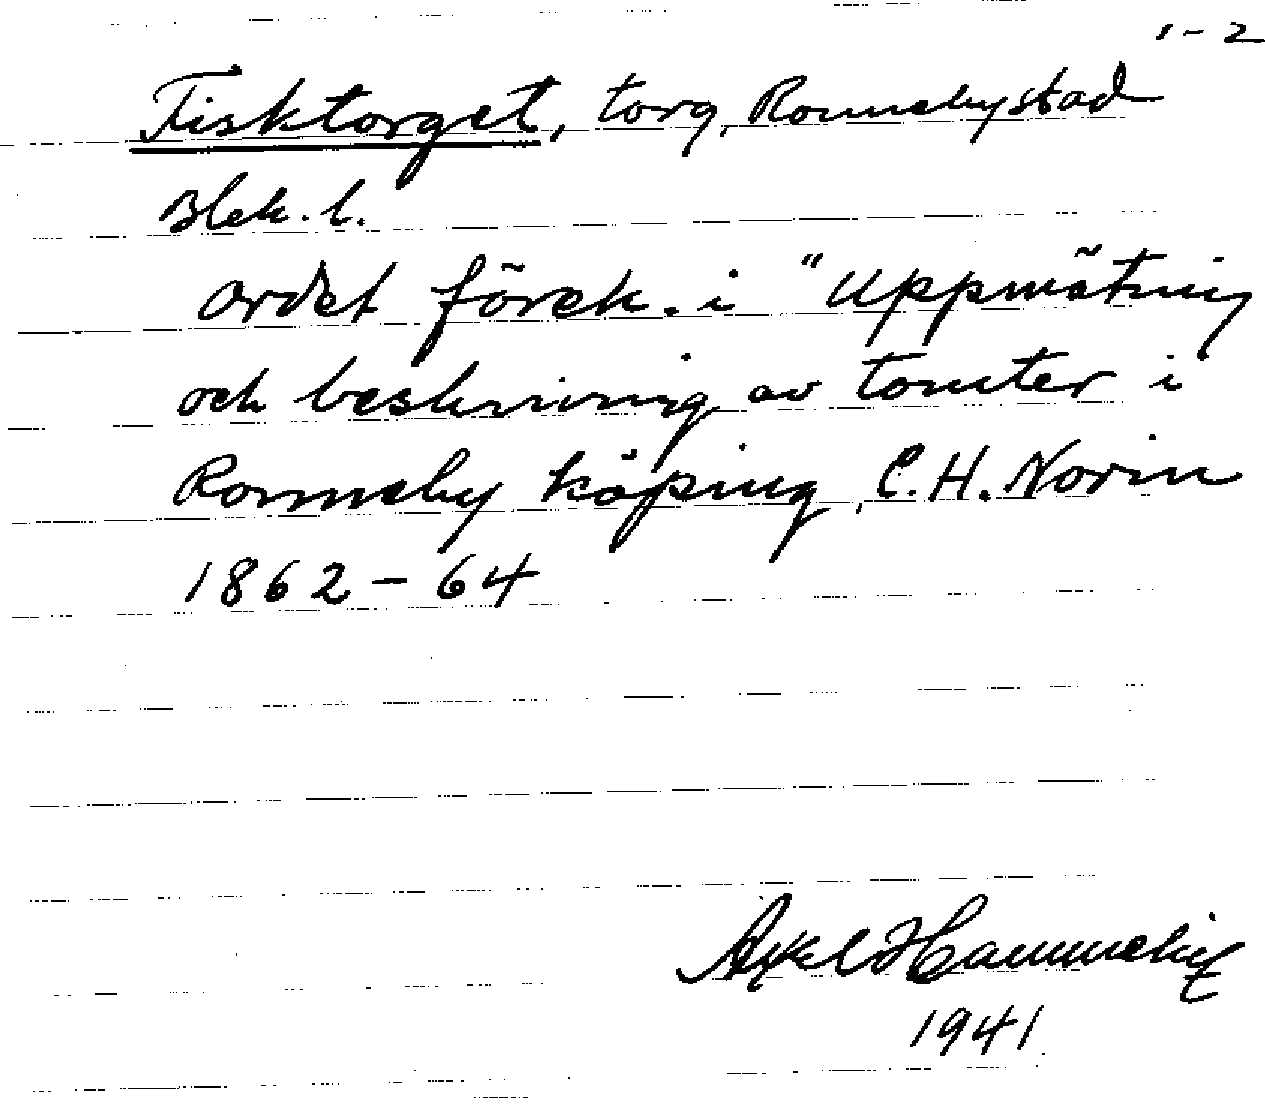 1-2
Fisktorget, torg, Ronneby stad
Blek. l.
Ordet förek. i "Uppmätning
och beskrivning av tomter i
Ronneby köping, C.H. Norin
1862-64
Axel
1941